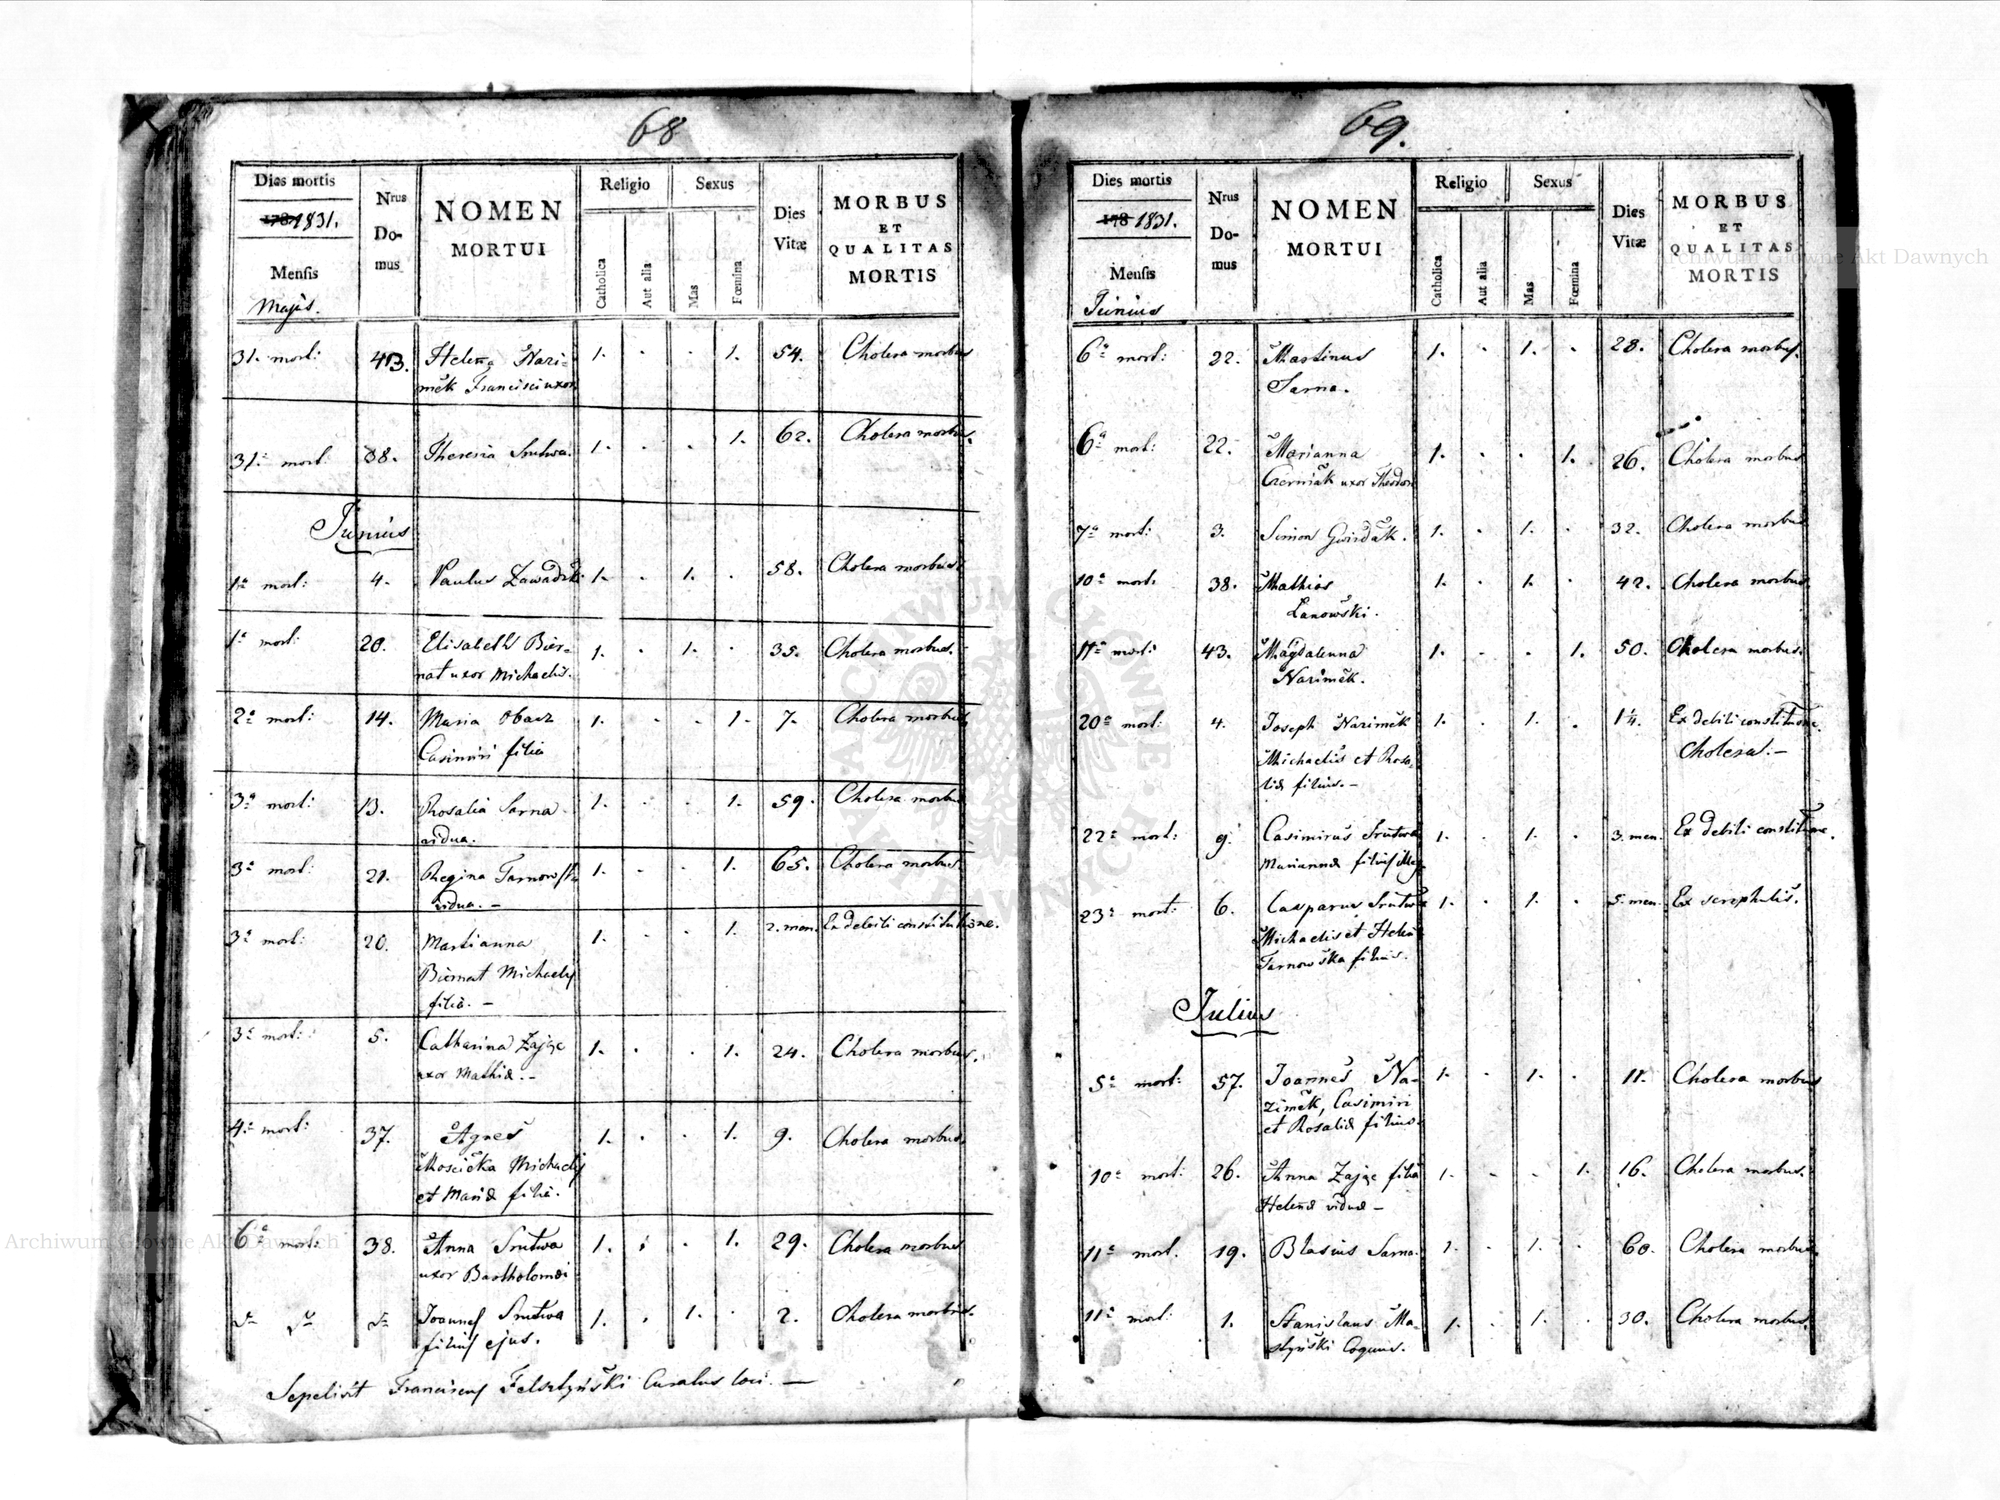 68
Dies mortis
178 1831.
Mensis
Majus.
Nrus Do-mus
NOMEN
MORTUI
Religio
Catholica
Aut alia
Sexus
Mas
Fœmina
Dies Vitæ
MORBUS
ET
QUALITAS
MORTIS
31. mort: 43. Helena Nazi- 1. . . 1. 54. Cholera morbus
mék Francisci uxor
31ª mort: 38. Theresia Srutwa. 1. . . 1. 62. Cholera morbus.
Junius
1ª mort: 4. Paulus Zawadzki 1. . 1. . 58. Cholera morbus.
1ª mort: 20. Elisabeth Bier- 1. . 1. . 35. Cholera morbus.
nat uxor Michaelis.
2ª mort: 14. Maria Obacz 1. . . 1. 7. Cholera morbus
Casimiri filia
3ª mort: 13. Rosalia Sarna 1. . . 1. 59. Cholera morbus
vidua.
3ª mort: 21. Regina Tarnowska 1. . . 1. 65. Cholera morbus.
vidua. –
3ª mort: 20. Marianna 1. . . 1. 2. men. Ex debili constitutione.
Biernat Michaelis
filia. –
3ª mort: 5. Catharina Zając 1. . . 1. 24. Cholera morbus.
uxor Mathiæ. –
4ª mort: 37. Agnes 1. . . 1. 9. Cholera morbus.
Mościcka Michaelis
et Mariæ filia.
6ª mort: 38. Anna Srutwa 1. . . 1. 29. Cholera morbus
uxor Bartholomæi
dº dº dº Joannes Srutwa 1. . 1. . 2. Cholera morbus.
filius ejus.
Sepelivit Franciscus Felsztyński Curatus loci. –
69.
Dies mortis
178 1831.
Mensis
Junius
Nrus Do-mus
NOMEN
MORTUI
Religio
Catholica
Aut alia
Sexus
Mas
Fœmina
Dies Vitæ
MORBUS
ET
QUALITAS
MORTIS
6ª mort: 22. Martinus 1. . 1. . 28. Cholera morbus.
Sarna.
6ª mort: 22. Marianna 1. . . 1. 26. Cholera morbus
Czerniak uxor Theodori
7ª mort: 3. Simon Gwizdak. 1. . 1. . 32. Cholera morbus
10ª mort: 38. Mathias 1. . 1. . 42. Cholera morbus.
Lanowski.
11ª mort: 43. Magdalenna 1. . . 1. 50. Cholera morbus.
Nazimék.
20ª mort: 4. Joseph Nazimék 1. . 1. . 1¼. Ex debili constitutione
Michaelis et Rosa- Cholera. –
liæ filius. –
22ª mort: 9. Casimirus Srutwa 1. . 1. . 3. men. Ex debili constitutione.
Mariannæ filius illeg.
23ª mort: 6. Casparus Srutwa 1. . 1. . 5. men. Ex scrophulis.
Michaelis et Helena
Tarnowska filius.
Julius
5ª mort: 57. Joannes Na- 1. . 1. . 11. Cholera morbus
zimék, Casimiri
et Rosaliæ filius.
10ª mort: 26. Anna Zając filia 1. . . 1. 16. Cholera morbus.
Helenæ viduæ –
11ª mort. 19. Blasius Sarna. 1. . 1. . 60. Cholera morbus.
11ª mort: 1. Stanislaus Ma- 1. . 1. . 30. Cholera morbus.
styński Coquus.
Archiwum Główne Akt Dawnych
Archiwum Główne Akt Dawnych
ARCHIWUM GŁÓWNE AKT DAWNYCH